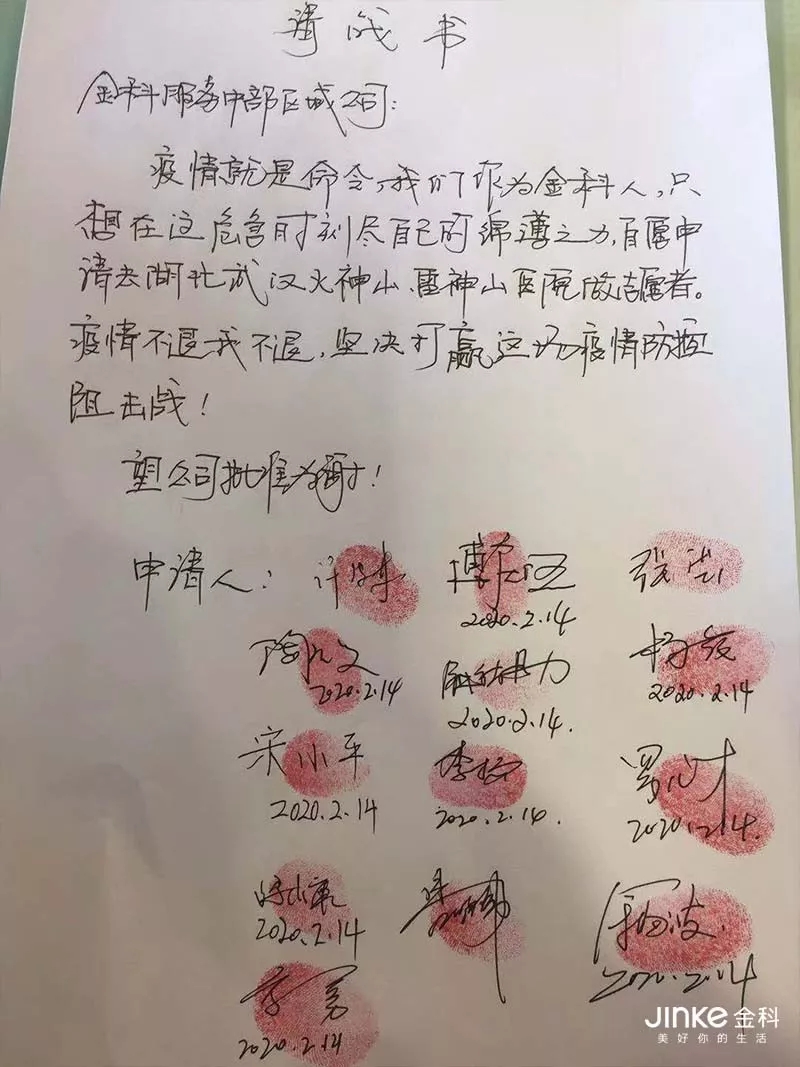 请战书
金科服务中部区域公司:
疫情就是命令,我们作为金科人,只
想在这危急时刻尽自己的绵薄之力,自愿申
请去湖北武汉火神山、雷神山医院做志愿者。
疫情不退我不退,坚决打赢这场疫情防控
阻击战!
望公司批准为谢!
申请人:
2020.2.14
2020.2.14 2020.2.14
2020.2.14.
宋小平
2020.2.14 2020.2.14. 2020.2.14.
2020.2.14
2020.2.14
2020.2.14
JINKE金科
美好你的生活